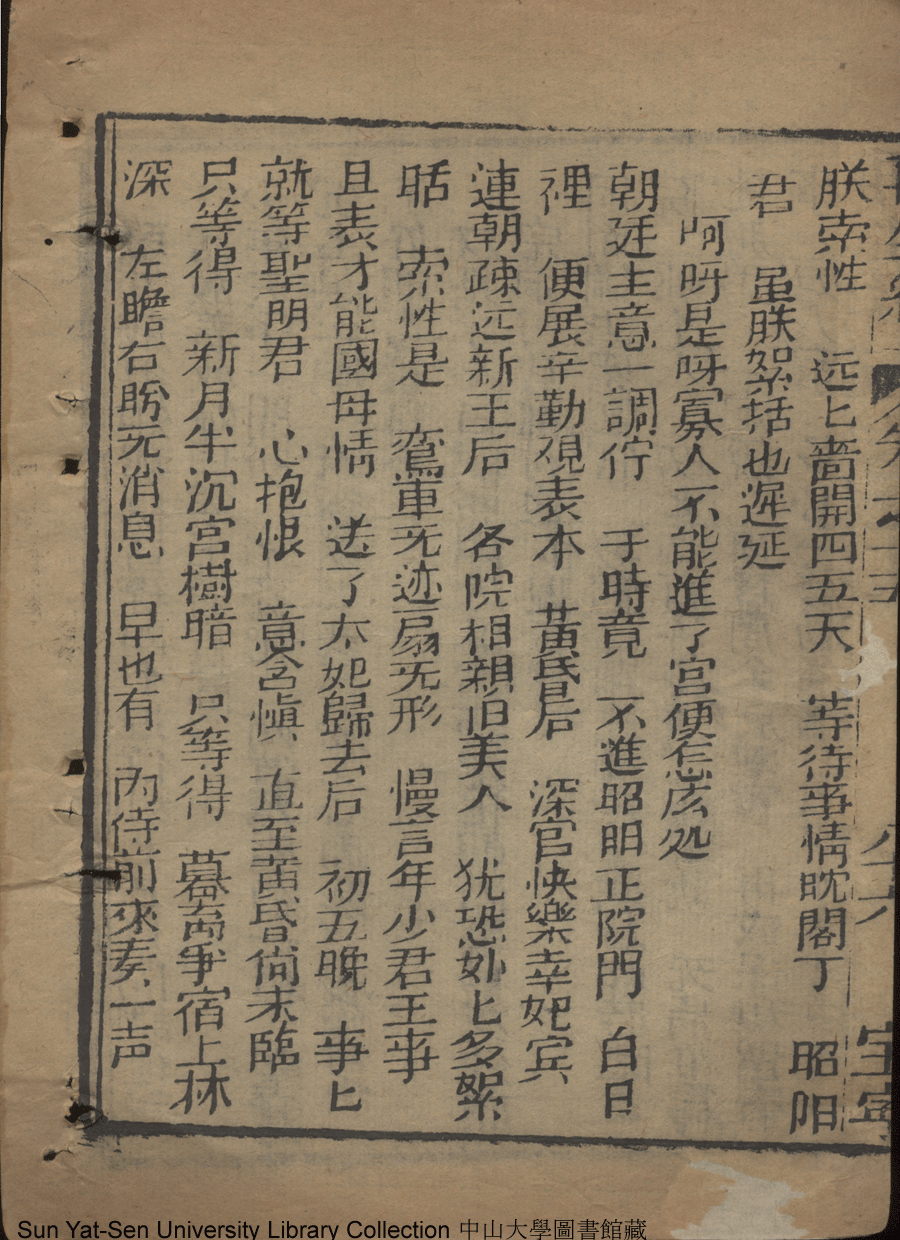 朕索性 远匕嗇開四五天 等待事情眈閣丁 昭阳
君 虽朕絮括也遲延
呵呀是呀寡人不能進了宮便怎庅処
朝廷主意一調佇 于時竟 不進昭阳正院門 白日
裡 便展辛勤观表本 黄昏后 深宫快樂幸妃宾
連朝疎远新王后 各院相親旧美人 犹恐妙匕多絮
聒 索性是 鸾軰无迹扇无形 慢言年少君王事
且表才能國母情 送了太妃歸去后 初五晚 事匕
就等聖明君 心抱恨 意含慎 直至黄昏尚未臨
只等得 新月半沉宫樹暗 只等得 暮禽爭宿上林
深 左瞻右盻无消息 早也有 内侍前來奏一声
Sun Yat-Sen University Library Collection 中山大學圖書館藏